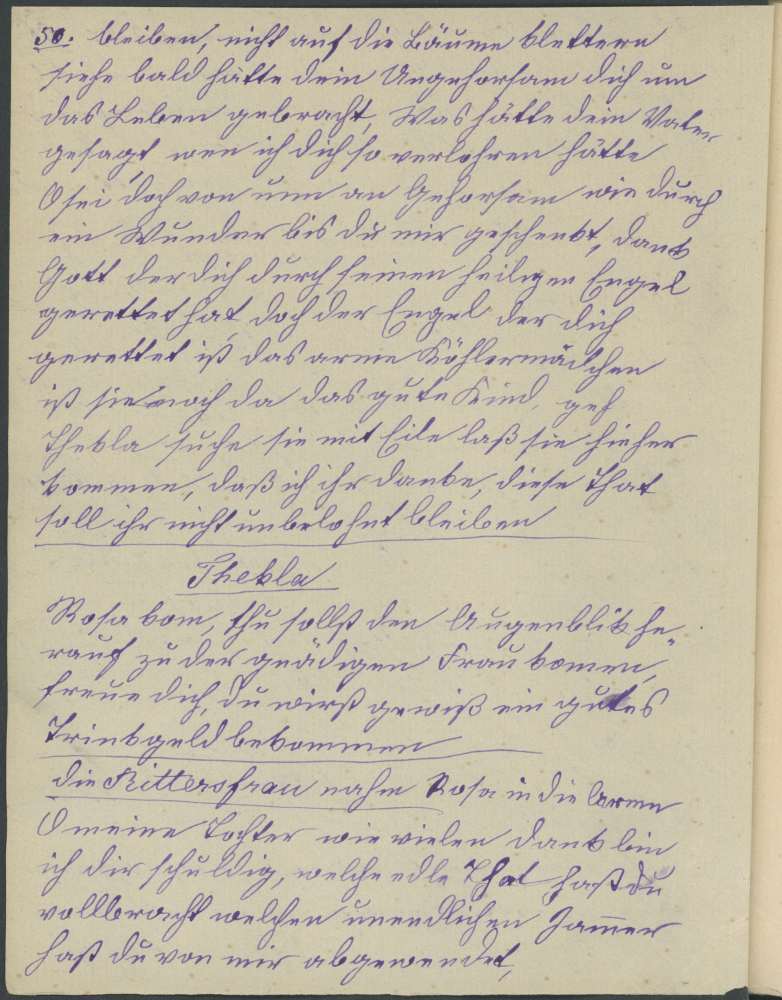 50. bleiben, nicht auf die Bäume klettern
siehe bald hätte dein Ungehorsam dich um
das Leben gebracht, Was hätte dein Vater
gesagt wen ich dich so verlohren hätte
O sei doch von nun an Gehorsam wie durch
ein Wunder bis du mir geschenkt, dank
Gott der dich durch seinen heiligen Engel
gerettet hat, doch der Engel der dich
gerettet ist das arme Köhlermädchen
ist sie noch da das gute Kind, geh
Thekla suche sie mit Eile laß sie hieher
kommen, daß ich ihr danke, diese That
soll ihr nicht unbelohnt bleiben
Thekla
Rosa kom, thu sollst den Augenblik he„
rauf zu der gnädigen Frau komen,
freue dich, du wirst gewiß ein gutes
Trinkgeld bekommen
die Rittersfrau nahm Rosa in die Arme
O meine Tochter wie vielen dank bin
ich dir schuldig, welche edle That hast du
vollbracht welchen unendlichen Jam̄er
hast du von mir abgewendet,